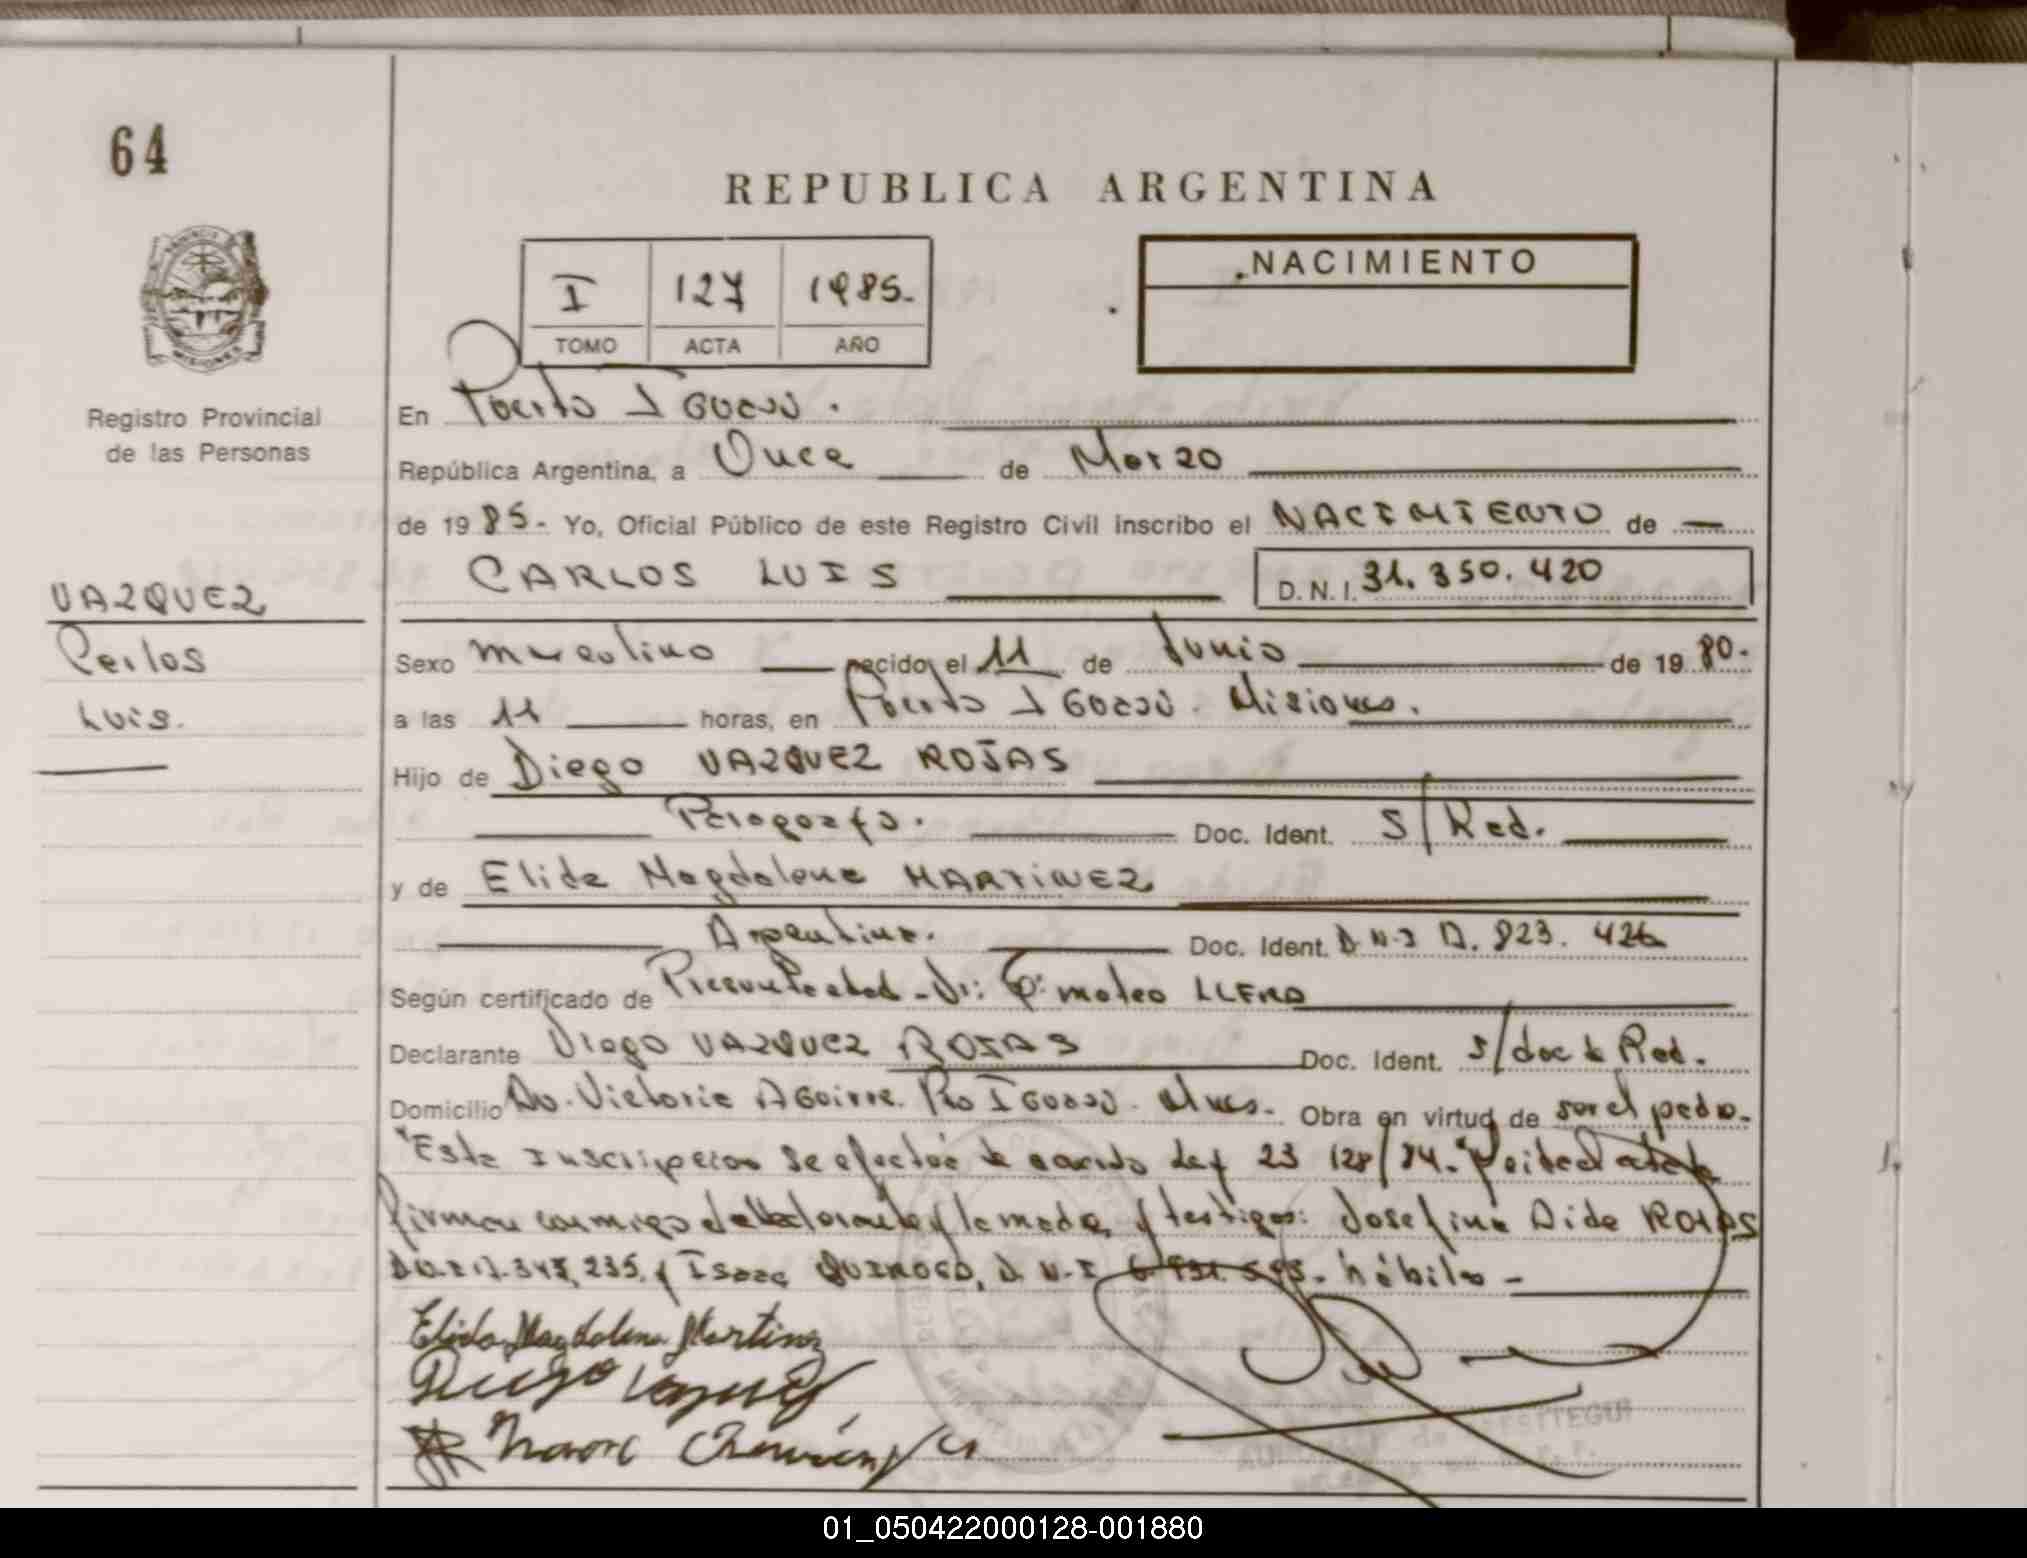 64
REPUBLICA ARGENTINA
NACIMIENTO
I 127 1985.
TOMO ACTA AÑO
MISIONES
Registro Provincial
de las Personas
En Puerto IGUAZÚ.
República Argentina, a Once de Marzo
de 1985.- Yo, Oficial Público de este Registro Civil inscribo el NACIMIENTO de
CARLOS LUIS D.N.I. 31.350.420
VAZQUEZ
Carlos
Luis.
Sexo masculino nacido el 11 de Junio de 1980.
a las 11 horas, en Puerto IGUAZÚ. Misiones.
Hijo de Diego VAZQUEZ ROJAS
Paraguayo. Doc. Ident. S/Rad.
y de Elida Magdalena MARTINEZ
Argentina. Doc. Ident. D.N.I 823.426
Según certificado de Dr: mateo LLERA
Declarante Diego VAZQUEZ ROJAS Doc. Ident. s/doc de Rad.
Domicilio Av. Victoria AGuirre. Pto IGUAZÚ. Mnes. Obra en virtud de ser el padre.
Esta Inscripción se efectúa de acuerdo Ley 23 128/84.
firman conmigo el declarante y la madre y testigos: Josefina Aida ROJAS
D.N.I 17.347.235. y Isaac QUIROGA, D.N.I hábiles -
Elida Magdalena Martinez
Diego Vazquez
01_050422000128-001880